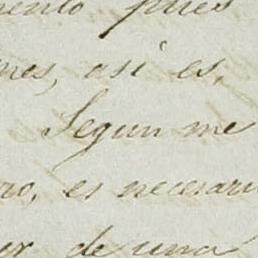 mento pues
nes, así es,
Segun me
ro, es necesari
er de una